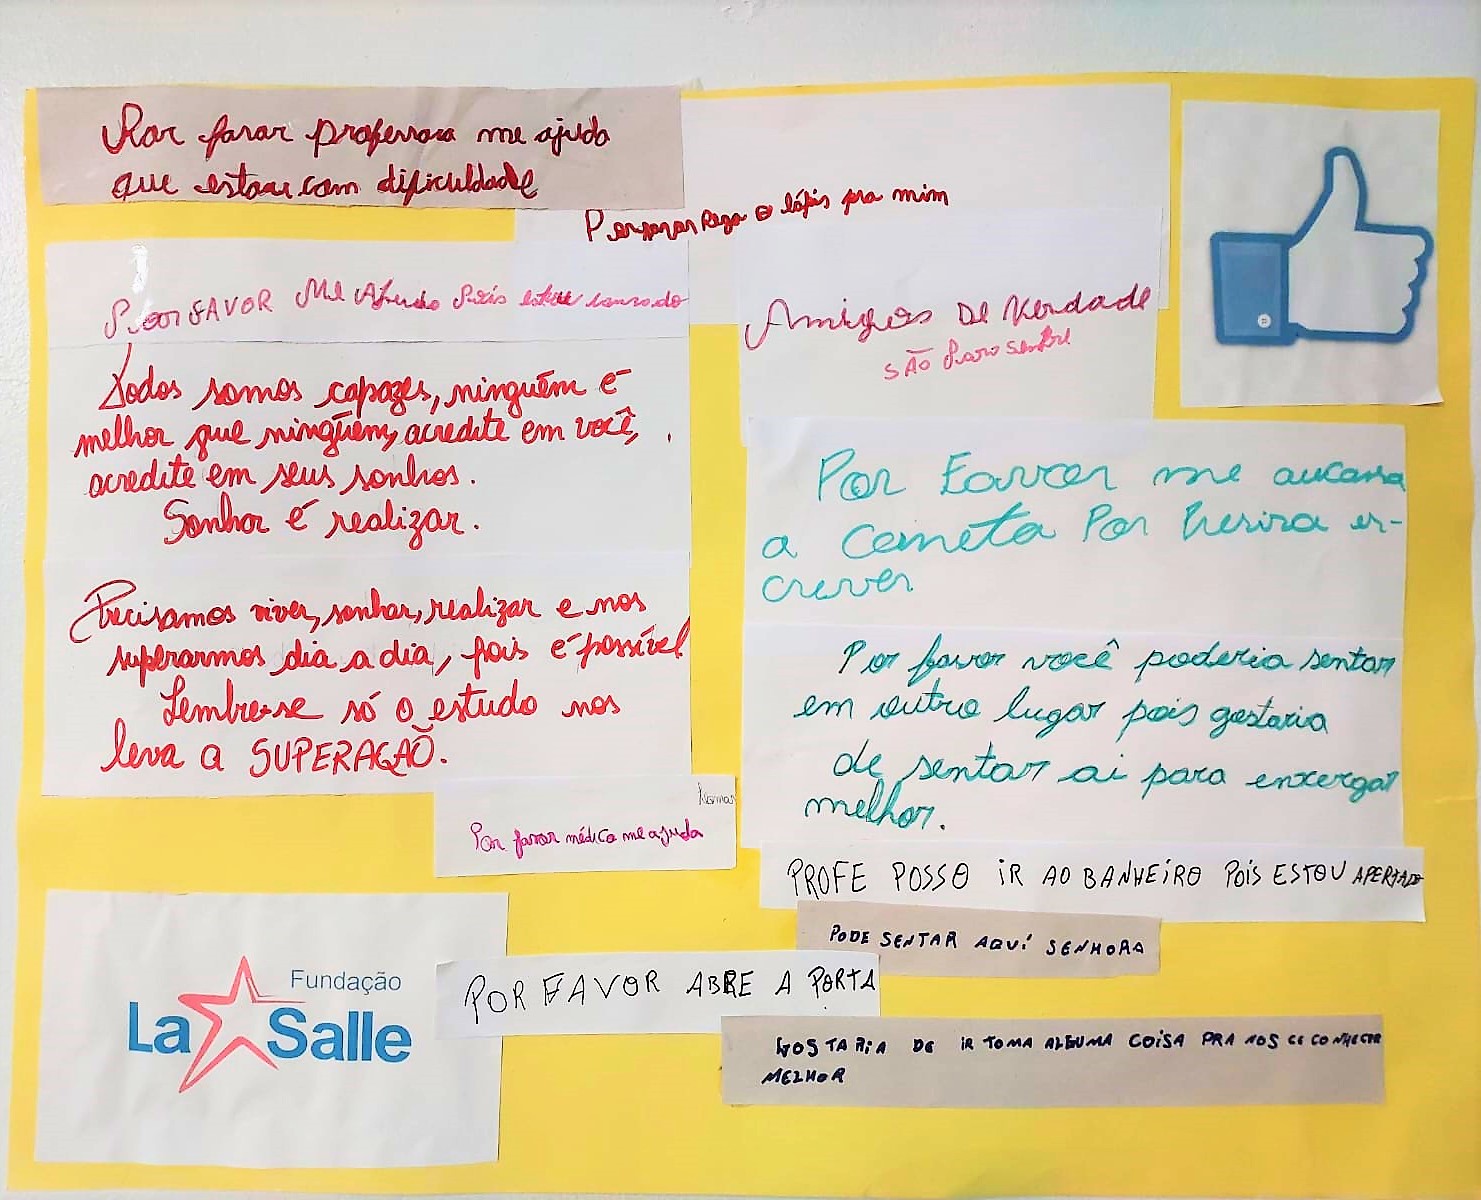 Por favar professora me ajuda
que estou com dificuldade
Por favor Pega o lápis pra mim
Por FAVOR Me Ajuda Pois estou cansado
Amigos De Verdade
SÃO Para sempre
Todos somos capazes, ninguém é
melhor que ninguém, acredite em você,
acredite em seus sonhos.
Sonhar é realizar.
Por Favor me
a Caneta Por
crever
Precisamos viver, sonhar, realizar e nos
superarmos dia a dia, pois é possível
Lembre-se só o estudo nos
leva a SUPERAÇÃO.
Por favor você poderia sentar
em outro lugar pois gostaria
de sentar ai para enxergar
melhor.
Normas
Por favor médico me ajuda
PROFE POSSO IR AO BANHEIRO POIS ESTOU APERTADO
PODE SENTAR AQUÍ SENHORA
POR FAVOR ABRE A PORTA
Fundação
La Salle
GOSTARIA DE IR TOMA ALGUMA COISA PRA NOS CE CONHECER
MELHOR